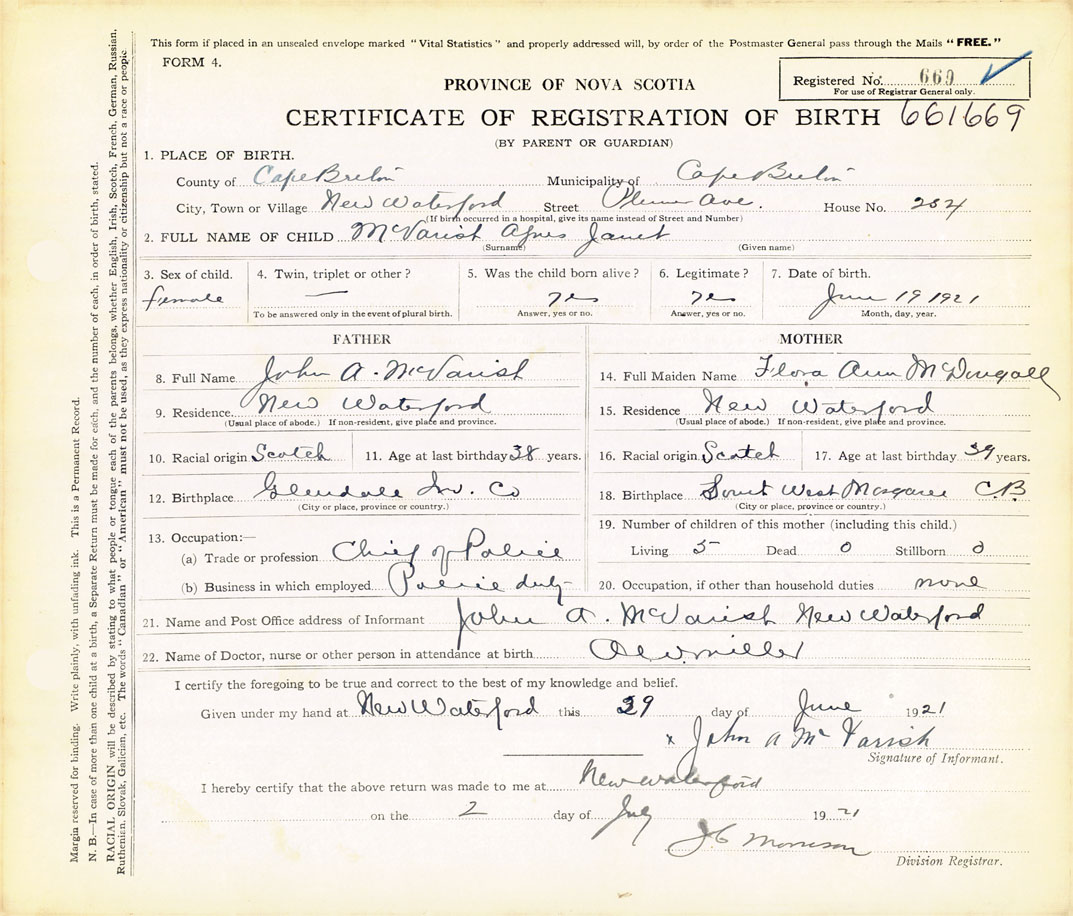 This form if placed in an unsealed envelope marked "Vital Statistics" and properly addressed will, by order of the Postmaster General pass through the Mails "FREE."
FORM 4.
Registered No. 669
For use of Registrar General only.
PROVINCE OF NOVA SCOTIA
CERTIFICATE OF REGISTRATION OF BIRTH 661669
(BY PARENT OR GUARDIAN)
1. PLACE OF BIRTH.
County of Cape Breton Municipality of Cape Breton
City, Town or Village New Waterford Street Plumr Ave. House No. 234
(If birth occurred in a hospital, give its name instead of Street and Number)
2. FULL NAME OF CHILD McVarish Agnes Janet
(Surname) (Given name)
3. Sex of child. 4. Twin, triplet or other? 5. Was the child born alive? 6. Legitimate? 7. Date of birth.
female — yes yes June 19 1921
To be answered only in the event of plural birth. Answer, yes or no. Answer, yes or no. Month, day, year.
FATHER
8. Full Name John A. McVarish
9. Residence New Waterford
(Usual place of abode.) If non-resident, give place and province.
10. Racial origin Scotch 11. Age at last birthday 38 years.
12. Birthplace Glendale Inv. Co
(City or place, province or country.)
13. Occupation:—
(a) Trade or profession Chief of Police
(b) Business in which employed Police duty
MOTHER
14. Full Maiden Name Flora Ann McDougall
15. Residence New Waterford
(Usual place of abode.) If non-resident, give place and province.
16. Racial origin Scotch 17. Age at last birthday 39 years.
18. Birthplace South West Margaree C.B
(City or place, province or country.)
19. Number of children of this mother (including this child.)
Living 5 Dead 0 Stillborn 0
20. Occupation, if other than household duties none
21. Name and Post Office address of Informant John A. McVarish New Waterford
22. Name of Doctor, nurse or other person in attendance at birth miller
I certify the foregoing to be true and correct to the best of my knowledge and belief.
Given under my hand at New Waterford this 29 day of June 1921
x John A McVarish
Signature of Informant.
I hereby certify that the above return was made to me at New Waterford
on the 2 day of July 1921
J C Morrison
Division Registrar.
Margin reserved for binding. Write plainly, with unfading ink. This is a Permanent Record.
N. B.—In case of more than one child at a birth, a Separate Return must be made for each, and the number of each, in order of birth, stated.
RACIAL ORIGIN will be described by stating to what people or tongue each of the parents belongs, whether English, Irish, Scotch, French, German, Russian,
Ruthenian, Slovak, Galician, etc. The words "Canadian" or "American" must not be used, as they express nationality or citizenship but not a race or people